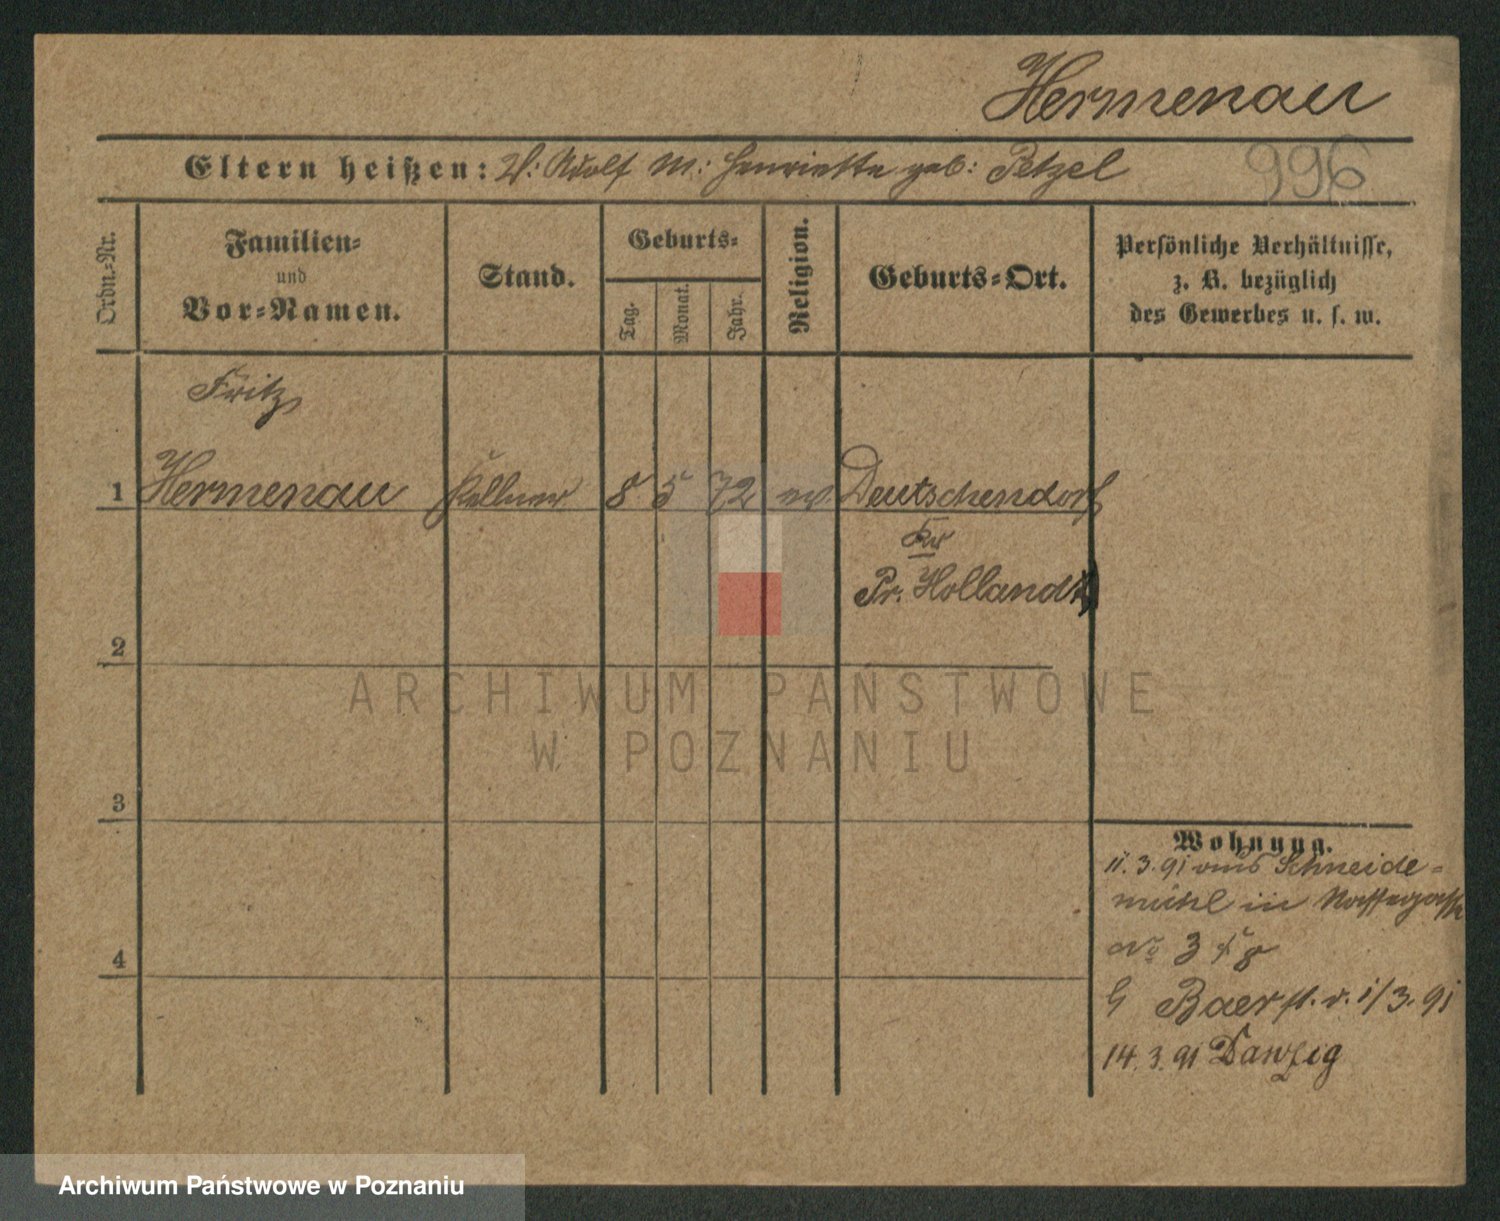 Hermenau
Eltern heißen: V: Adolf M: Henriette geb: Petzel
996
Ordn.-Nr.
Familien-
und
Vor-Namen.
Stand.
Geburts-
Tag.
Monat.
Jahr.
Religion.
Geburts-Ort.
Persönliche Verhältnisse,
z. B. bezüglich
des Gewerbes u. s. w.
Fritz
1 Hermenau Kellner 8 5 72 ev. Deutschendorf
Kr
Pr. Holland
2
ARCHIWUM PAŃSTWOWE
W POZNANIU
3
Wohnung.
11. 3. 91 aus Schneide-
mühl in Nassegasse
No 3
Baer 1/3. 91
4
14. 3. 91 Danzig
Archiwum Państwowe w Poznaniu